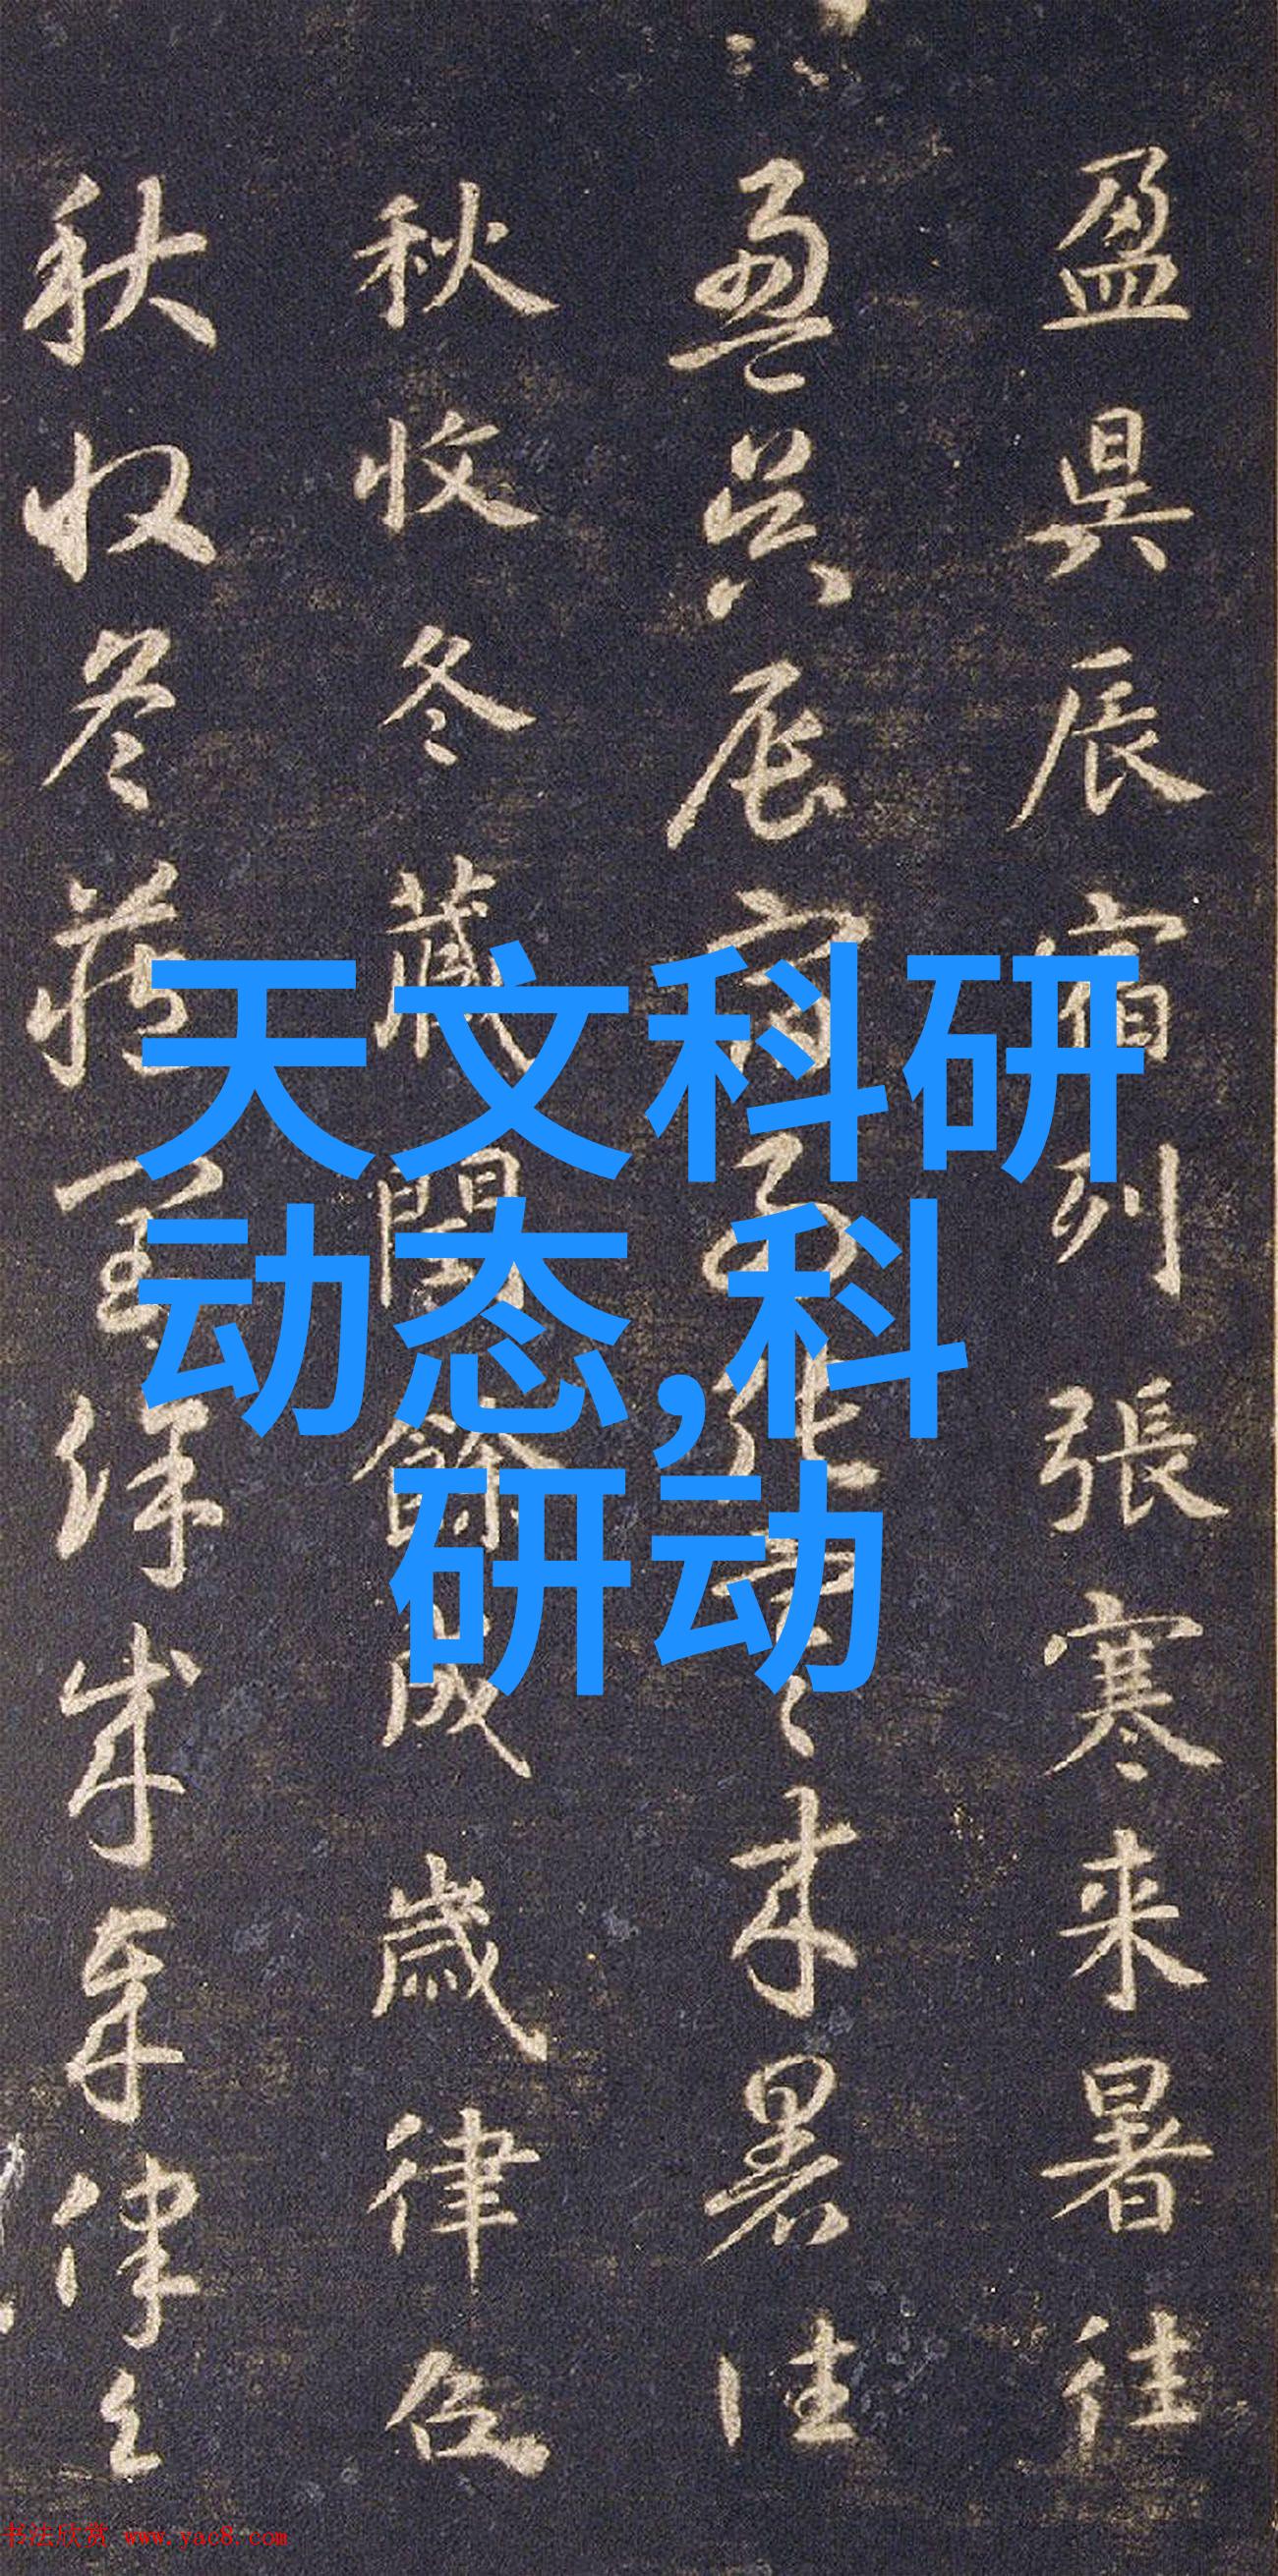 盈昃辰宿列張寒来暑往
盈昃辰宿列張寒来暑往
秋收冬藏閏餘成歲律召
秋收冬藏閏餘成歲律召
天文科研
动态,科
研动
书法欣赏 www.yac8.com